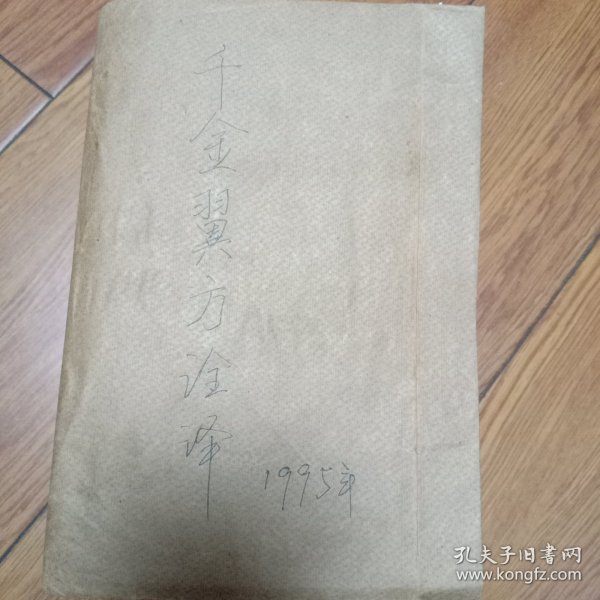 千金翼方诠译
1995年
孔夫子旧書网
www.kongfz.com